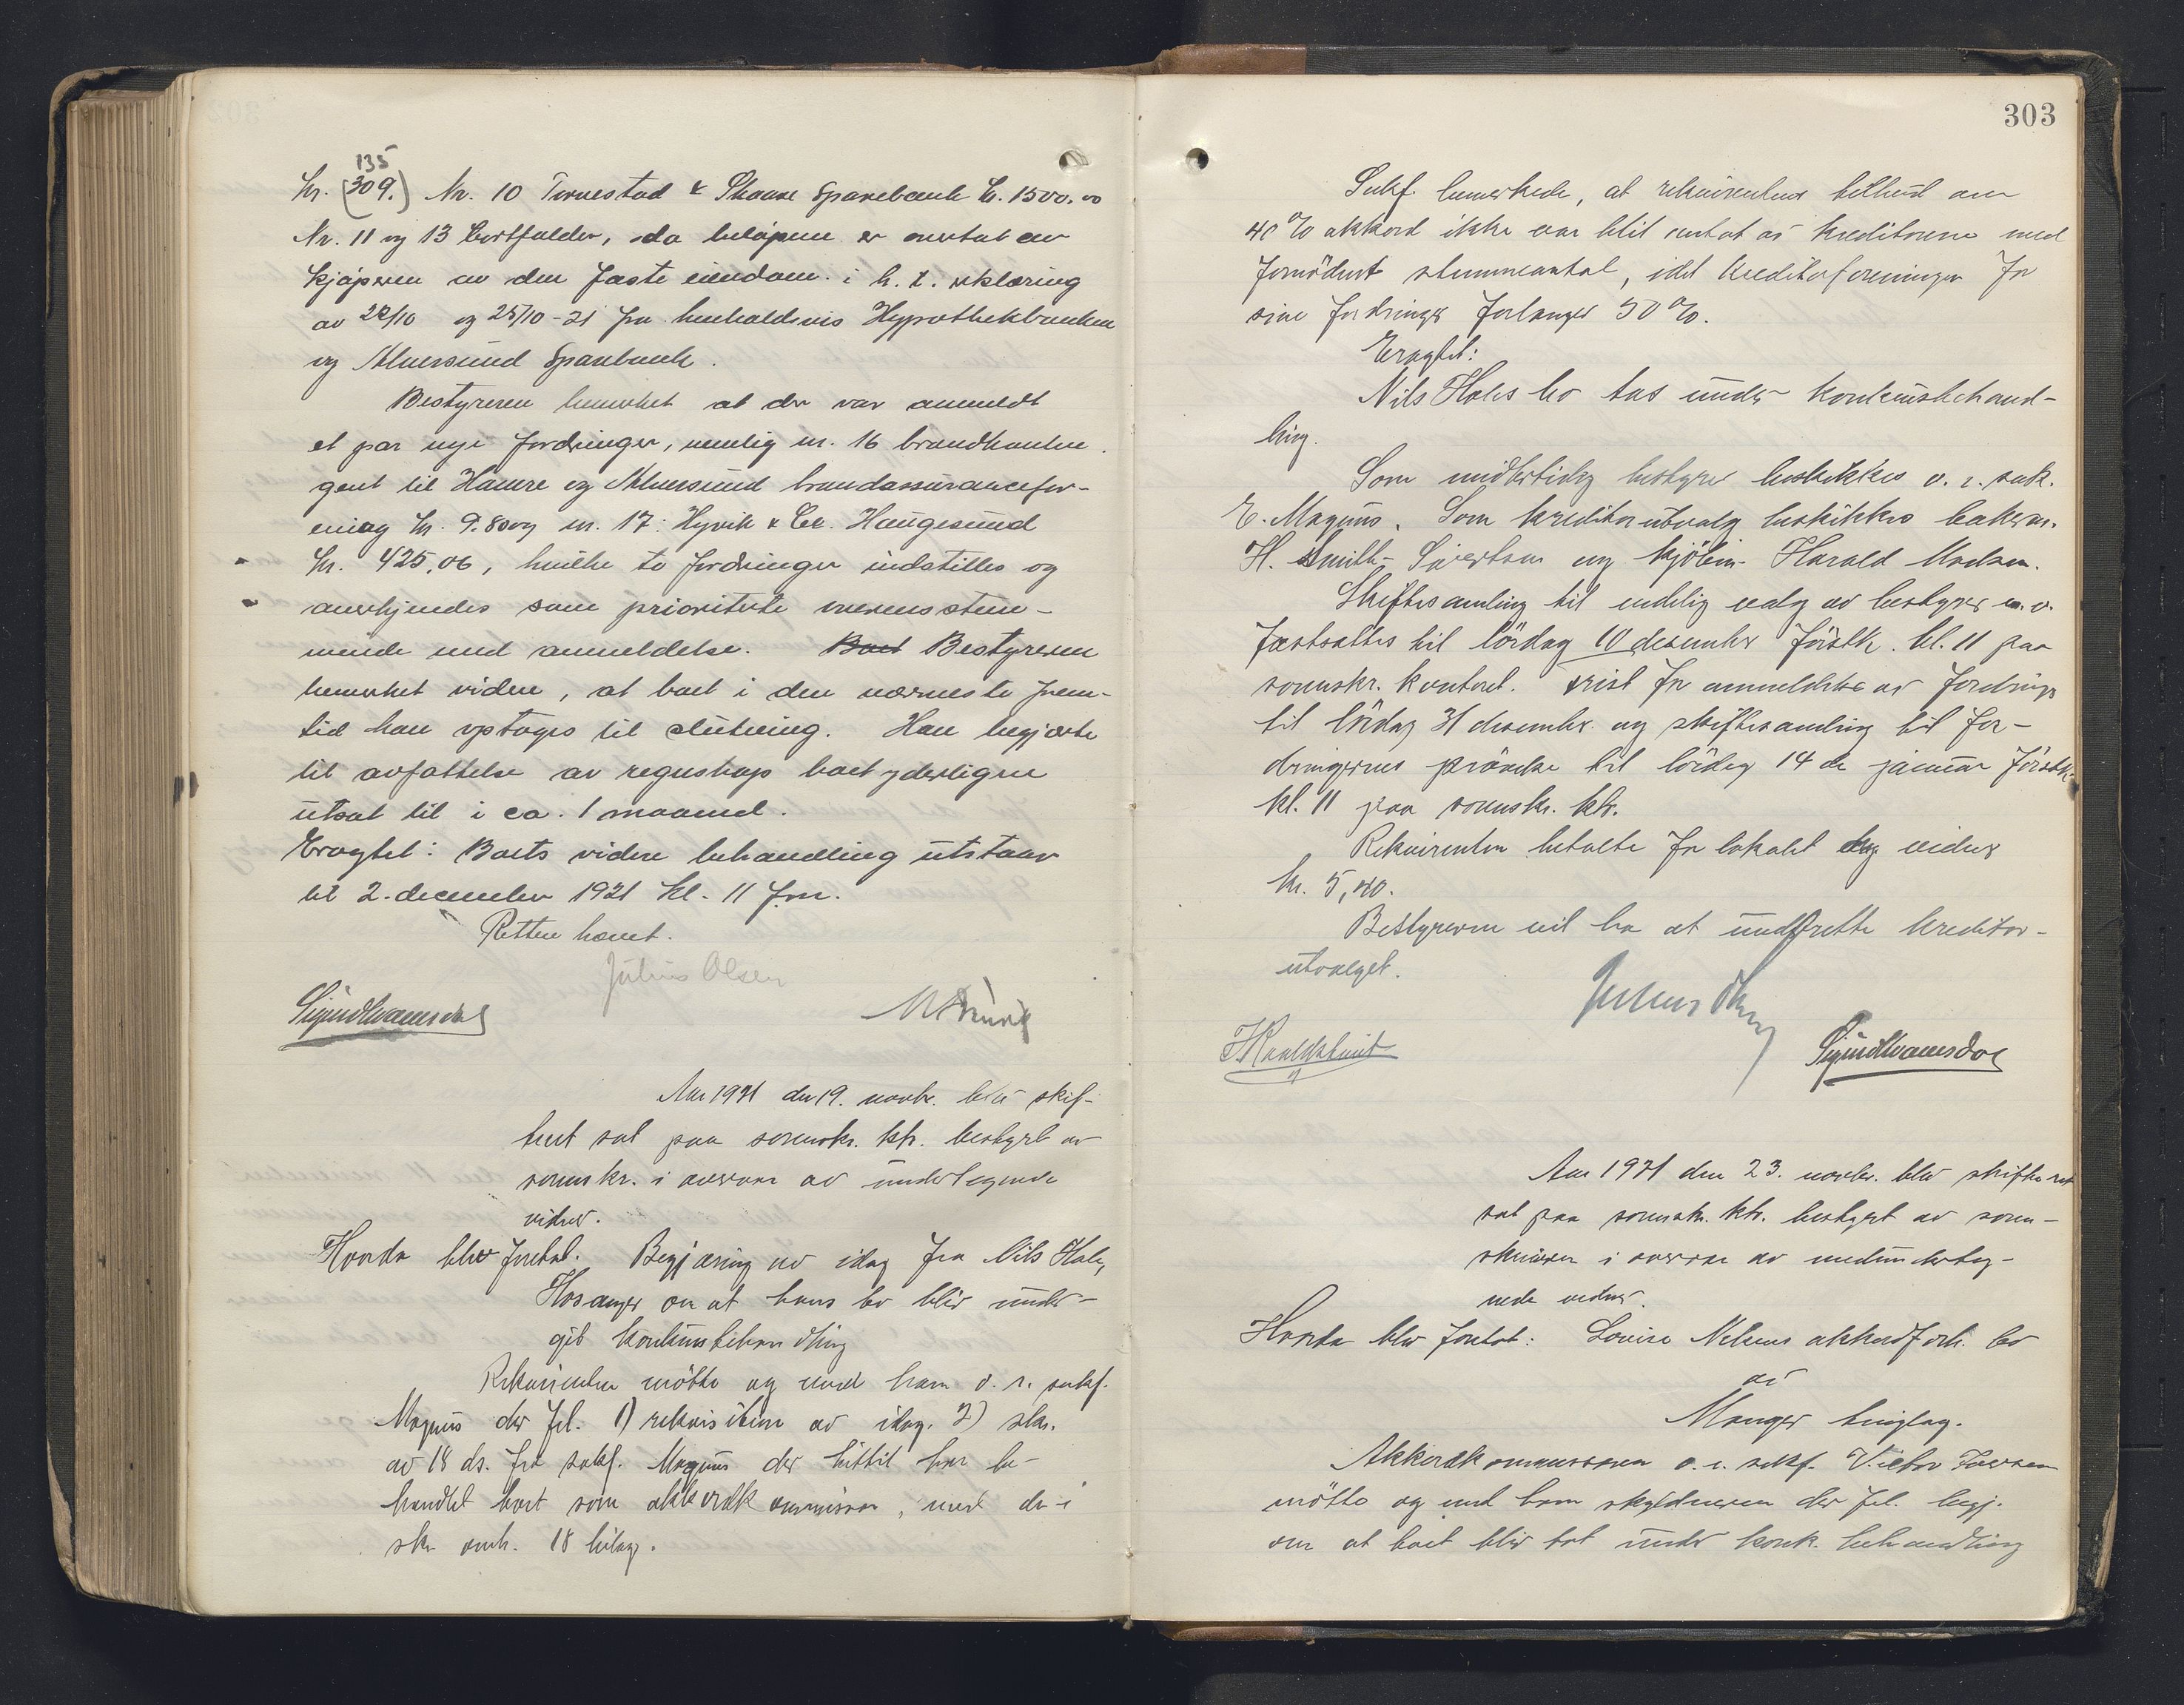 135
kr. (309.) Nr. 10 Torvestad & Skaare Sparebank kr. 1500.00
Nr. 11 og 13 bortfalder, da beløpene er overtat av
kjøperen av den faste eiendom i h. t. erklæring
av 22/10 og 25/10-21 fra henholdsvis Hypothekbanken
og Alversund Sparebank.
Bestyreren bemerket at der var anmeldt
et par nye fordringer, nemlig nr. 16 brandkontin
gent til Hamre og Alversund brandassurancefor-
ening kr. 9.80 og nr. 17: Hyvik & Co. Haugesund
kr. 425,06, hvilke to fordringer indstilles og
anerkjendes som prioriterte overensstem-
mende med anmeldelse. Boet Bestyreren
bemerket videre, at boet i den nærmeste frem-
tid kan optages til slutning. Han begjærte
til avfattelse av regnskap boet yderligere
utsat til i ca. 1 maaned.
Eragtet: Boets videre behandling utstaar
til 2. december 1921 kl. 11 fm.
Retten hævet.
Julius Olsen
Aar 1921 den 19. novbr. blev skif-
teret sat paa sorenskr. ktr. bestyrt av
sorenskr. i overvær av undertegnede
vidner.
Hvorda blev foretat. Begjæring av idag fra Nils Hole,
Hosanger om at hans bo blir under-
git konkursbehandling
Rekvirenten møtte og med ham o. r. sakf.
Magnus der frl. 1) rekvisition av idag. 2) skr.
av 18 ds. fra sakf. Magnus der hittil har be-
handlet boet som akkordkommissær, med de i
skr. omh. 18 bilag.
303
Sakf. bemerkede, at rekvirentens tilbud om
40 % akkord ikke var blit entat av kreditorene med
fornødent stemmeantal, idet Kreditorforeningen for
sine fordringer forlanger 50 %.
Eragtet:
Nils Holes bo tas under konkursbehand-
ling.
Som midlertidig bestyrer beskikkes o. r. sak.
E. Magnus. Som kreditorutvalg beskikkes bakerm.
H. Smith-Sivertsen og kjøbm. Harald Madsen.
Skiftesamling til endelig valg av bestyrer m. v.
fastsattes til lørdag 10 desember førstk. kl. 11 paa
sorenskr. kontoret. Frist for anmeldelse av fordringer
til lørdag 31 desember og skiftesamling til for-
dringernes prøvelse til lørdag 14 de januar førstk.
kl. 11 paa sorenskr. ktr.
Rekvirenten betalte for lokalet og vidner
kr. 5,40.
Bestyreren vil ha at underrette kreditor-
utvalget.
Aar 1921 den 23. novbr. blev skifteret
sat paa sorenskr. ktr. bestyrt av soren-
skriveren i overvær av medunderteg-
nede vidner.
Hvorda blev foretat: Louise Nilsens akkordforh. bo
av
Manger tinglag.
Akkordkommissæren o. r. sakf. Victor Iversen
møtte og med ham skyldneren der frl. begj.
om at boet blir tat under konk. behandling